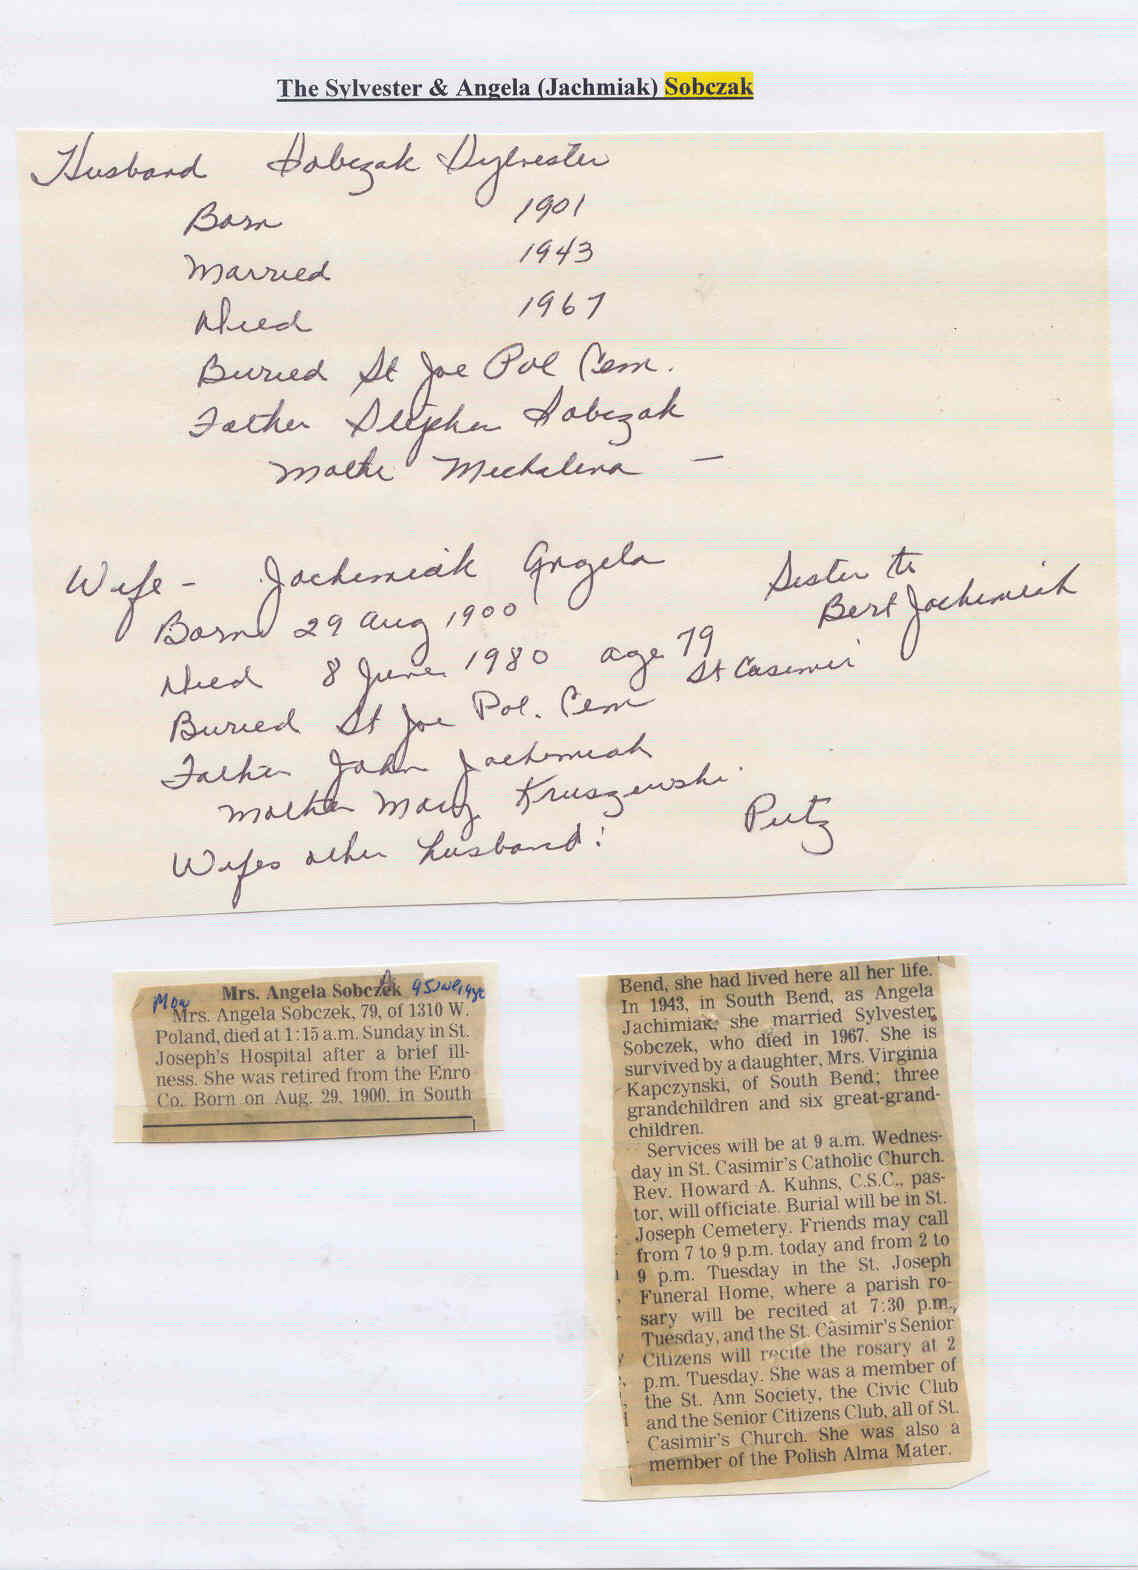 The Sylvester & Angela (Jachmiak) Sobczak
Husband Sobczak Sylvester
Born 1901
Married 1943
Died 1967
Buried St Joe Pol Cem.
Father Stephen Sobczak
Mothe Michalena —
Wife - Jachimiak Angela
Sister to
Bert Jachimiak
Born 29 Aug 1900
Died 8 June 1980 age 79
St Casimir
Buried St Joe Pol. Cem
Father John Jachimiak
Mother Mary Kruszewski
Wifes other husband: Putz
Mrs. Angela Sobczek
Mon 9 June 1980
Mrs. Angela Sobczek, 79, of 1310 W.
Poland, died at 1:15 a.m. Sunday in St.
Joseph's Hospital after a brief ill-
ness. She was retired from the Enro
Co. Born on Aug. 29, 1900, in South
Bend, she had lived here all her life.
In 1943, in South Bend, as Angela
Jachimiak, she married Sylvester
Sobczek, who died in 1967. She is
survived by a daughter, Mrs. Virginia
Kapczynski, of South Bend; three
grandchildren and six great-grand-
children.
Services will be at 9 a.m. Wednes-
day in St. Casimir's Catholic Church.
Rev. Howard A. Kuhns, C.S.C., pas-
tor, will officiate. Burial will be in St.
Joseph Cemetery. Friends may call
from 7 to 9 p.m. today and from 2 to
9 p.m. Tuesday in the St. Joseph
Funeral Home, where a parish ro-
sary will be recited at 7:30 p.m.,
Tuesday, and the St. Casimir's Senior
Citizens will recite the rosary at 2
p.m. Tuesday. She was a member of
the St. Ann Society, the Civic Club
and the Senior Citizens Club, all of St.
Casimir's Church. She was also a
member of the Polish Alma Mater.